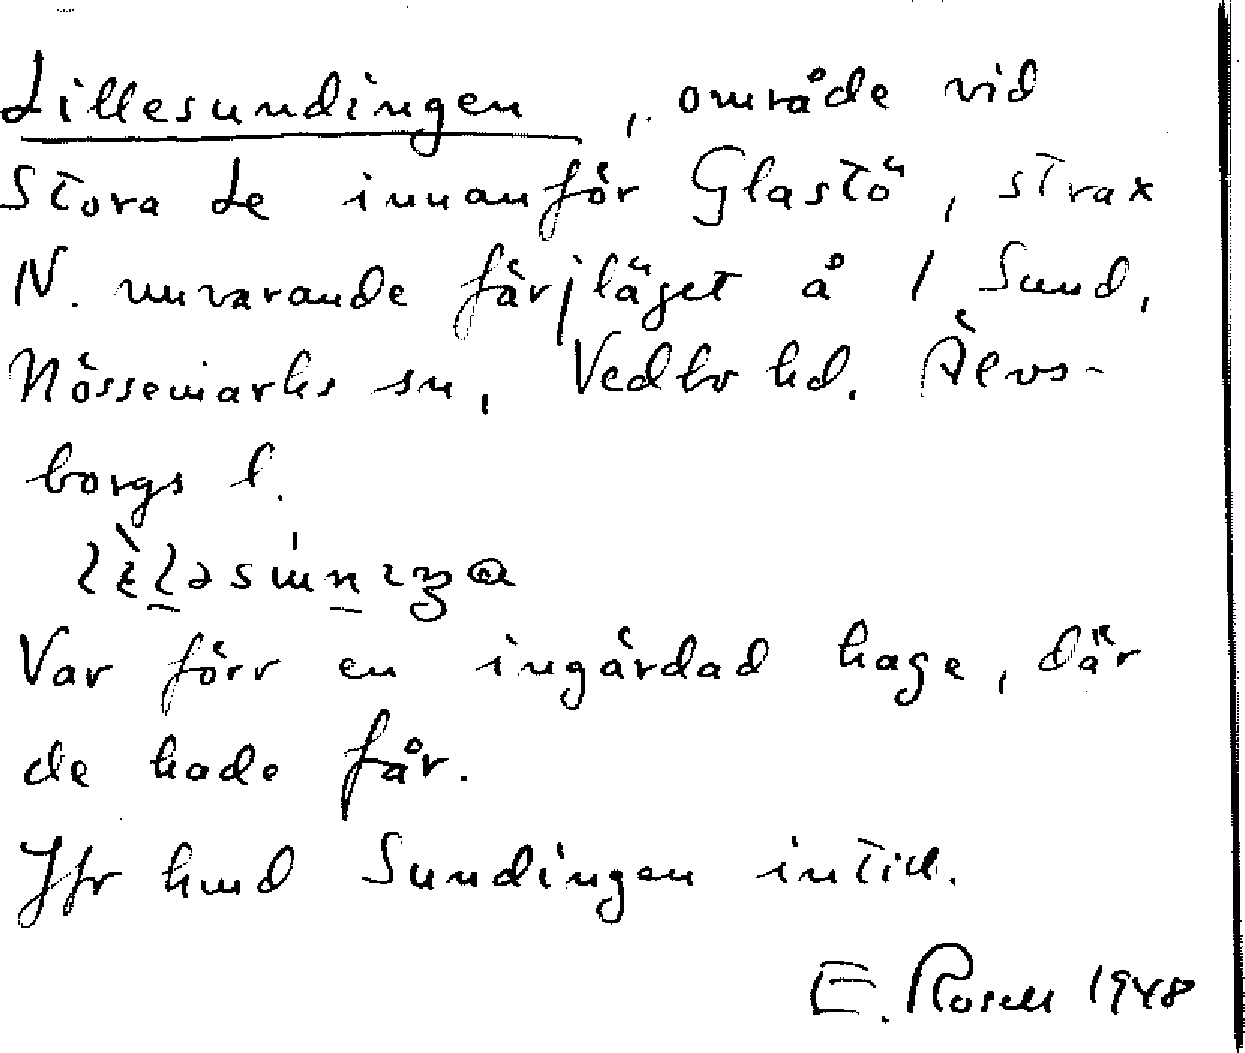 Lillesundingen, område vid
Stora Le innanför Glastö, strax
N. nuvarande färjläget å 1 Sund,
Nössemarks sn, Vedbo hd. Älvs-
borgs l.
Var förr en ingärdad hage, där
de hade får.
Jfr hmd Sundingen intill.
E. Rosell 1948